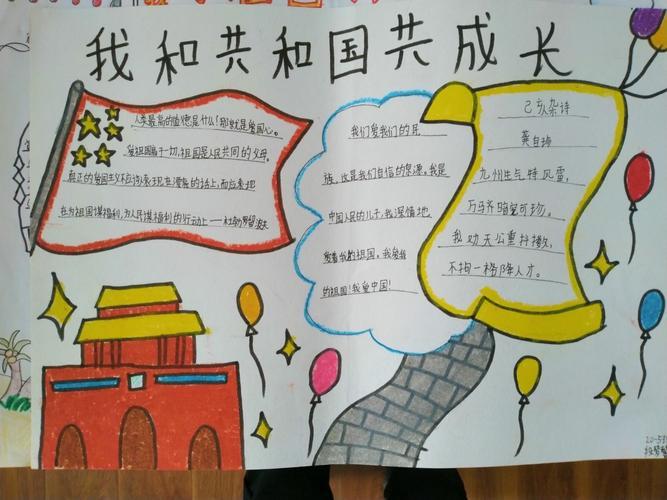 我和共和国共成长
人类最高的道德是什么?那就是爱国心。
爱祖国高于一切,祖国是人民共同的父母。
真正的爱国主义不应该表现在漂亮的话上,而应表现
在为祖国谋福利,为人民谋福利的行动上——杜勃罗留波夫
我们爱我们的民
族,这是我们自信的泉源。我是
中国人民的儿子,我深情地
爱着我的祖国。我爱我
的祖国!我爱中国!
己亥杂诗
龚自珍
九州生气恃风雷,
万马齐喑究可哀。
我劝天公重抖擞,
不拘一格降人才。